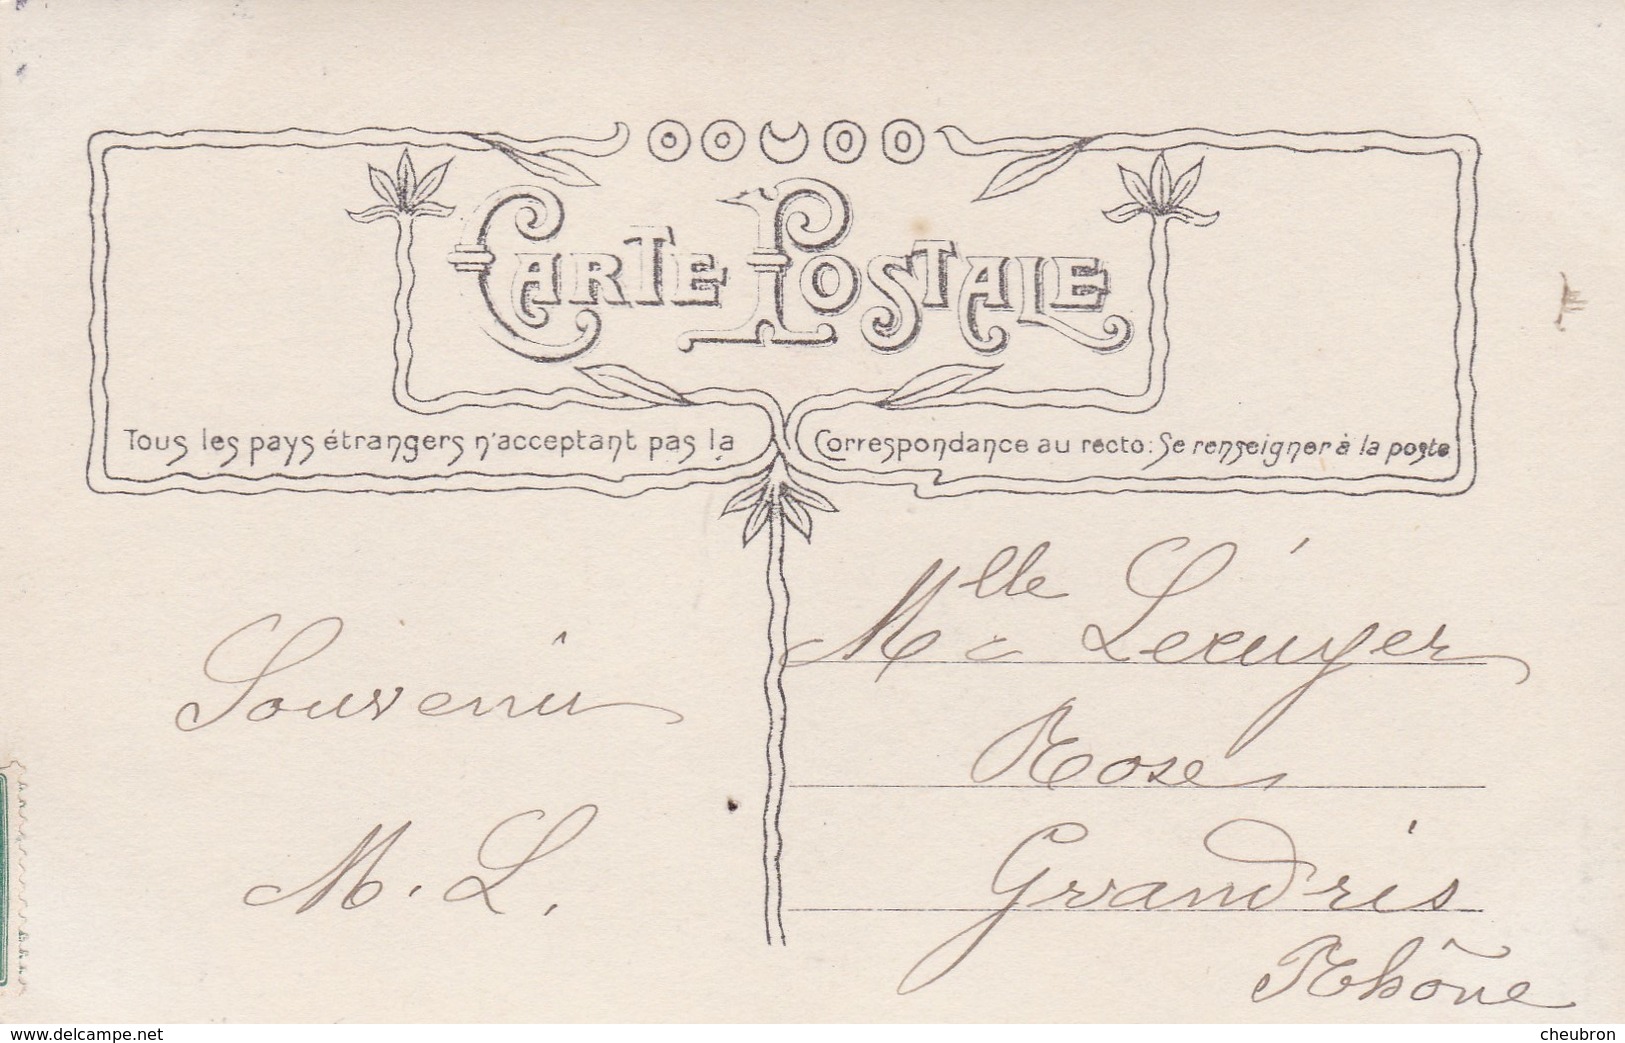 CARTE POSTALE
Tous les pays étrangers n'acceptant pas la Correspondance au recto: Se renseigner à la poste
Souvenir
M. L.
Mlle Lécuyer
Rose
Grandris
Rhône
www.delcampe.net
cheubron